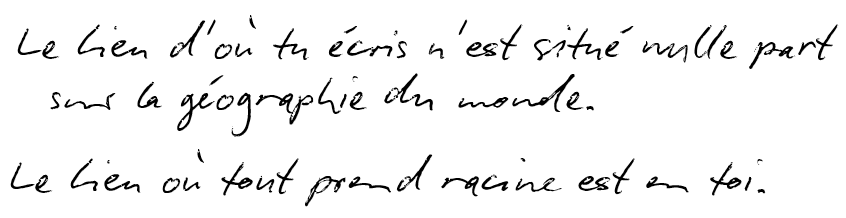 Le lien d'où tu écris n'est situé nulle part
sur la géographie du monde.
Le lien où tout prend racine est en toi.